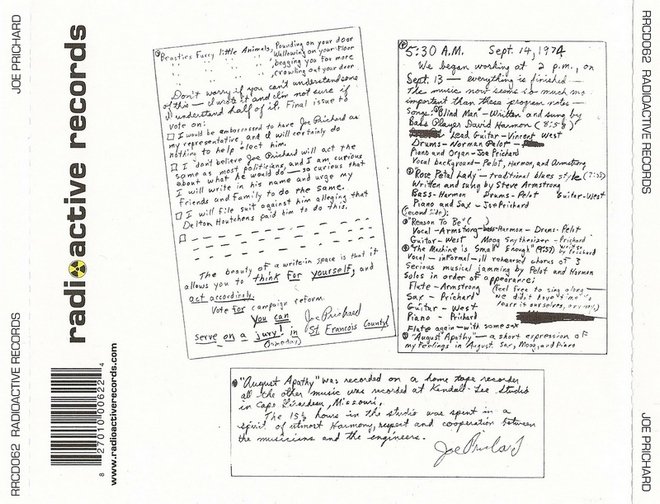 JOE PRICHARD
RRCD062 RADIOACTIVE RECORDS
radioactive records
www.radioactiverecords.com
8 27010 00622 4
Beasties Furry little Animals, Pounding on your door
Wallowing on your floor
begging you for more
crawling out your door
Don't worry if you can't understand some
of this — I wrote it and I'm not sure if
I understand half of it. Final issue to
vote on:
I would be embarrassed to have Joe Prichard as
my representative and I will certainly do
nothing to help elect him.
I don't believe Joe Prichard will act the
same as most politicians, and I am curious
about what he would do — so curious that
I will write in his name and urge my
Friends and Family to do the same.
I will file suit against him alleging that
Delton Houtchens paid him to do this.
The beauty of a write-in space is that it
allows you to think for yourself, and
act accordingly.
Vote for campaign reform.
You can Joe Prichard
serve on a jury! in St Francois County!
5:30 A.M. Sept. 14, 1974
We began working at 2 p.m., on
Sept. 13 — everything is finished —
The music now seems so much more
important than these program notes —
Songs: Blind Man — Written and sung by
Bass Player David Harmon
Lead Guitar — Vincent West
Drums — Norman Pelot
Piano and Organ — Joe Prichard
Vocal background — Pelot, Harmon, and Armstrong
Rose Petal Lady — traditional blues style
Written and sung by Steve Armstrong
Bass — Harmon Drums — Pelot Guitar — West
Piano and Sax — Joe Prichard
(second side):
"Reason To Be"
Vocal — Armstrong Bass — Harmon — Drums — Pelot
Guitar — West Moog Synthesizer — Prichard
"The Machine is Small Enough" written by Prichard
Vocal — informal — ill rehearsed chorus of 3
Serious musical jamming by Pelot and Harmon
Solos in order of appearance:
Flute — Armstrong (Feel free to sing along —
Sax — Prichard we didn't have time to
Guitar — West learn it ourselves,
Piano — Prichard
Flute again — with some sax
"August Apathy" — a short expression of
my feelings in August. Sax, Moog, and Piano
"August Apathy" was recorded on a home tape recorder
all the other music was recorded at Kendall-Lee Studio
in Cape Girardeau, Missouri.
The 15½ hours in the studio was spent in a
spirit of utmost Harmony, respect and cooperation between
the musicians and the engineers.
Joe Prichard
RRCD062 RADIOACTIVE RECORDS
JOE PRICHARD